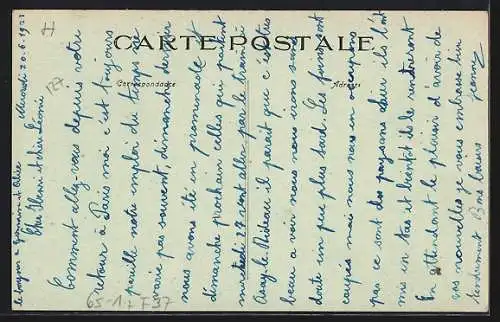 CARTE POSTALE
Correspondance
Adresse
Mercredi 20.6.1921
Cher Pierre et chère Léonie
Comment allez vous depuis votre
retour à Paris moi c'est toujours
pareille notre emploi du temps ne
varie pas souvent, dimanche dernier
nous avons été en promenade et
dimanche prochain celles qui partent
mercredi 22 vont aller par le tram à
Azay-le-Rideau il paraît que c'est très
beau a voir nous nous irons sans
doute un peu plus tard. Les foins sont
coupés mais nous nous en occupons
pas ce sont des paysans d'ici ils l'ont
mis en tas et bientôt ils le rentreront
En attendant le plaisir d'avoir de
vos nouvelles je vous embrasse bien
tendrement Bons baisers
Jeanne
le bonjour à Germaine et Alice
65-1 + F 37